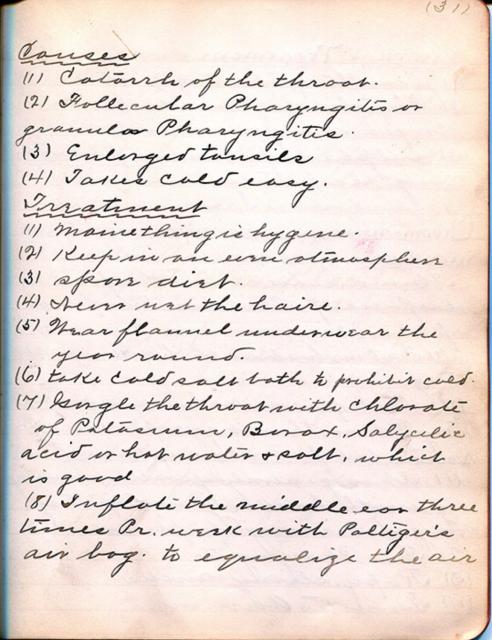 (31)
Causes
(1) Catarrh of the throat.
(2) Follecular Pharyngitis or
granular Pharyngitis.
(3) Enlarged tonsils
(4) Takes cold easy.
Treatment
(1) Maine thing is hygene.
(2) Keep in an even atmosphere
(3) spare diet.
(4) Never wet the haire.
(5) Wear flannel underwear the
year round.
(6) take cold salt bath to prohibit cold.
(7) Gargle the throat with chlorate
of Potassium, Borax, Salycilic
acid or hot water & salt, which
is good
(8) Inflate the middle ear three
times Pr. week with Poltiger's
air bag. to equalize the air